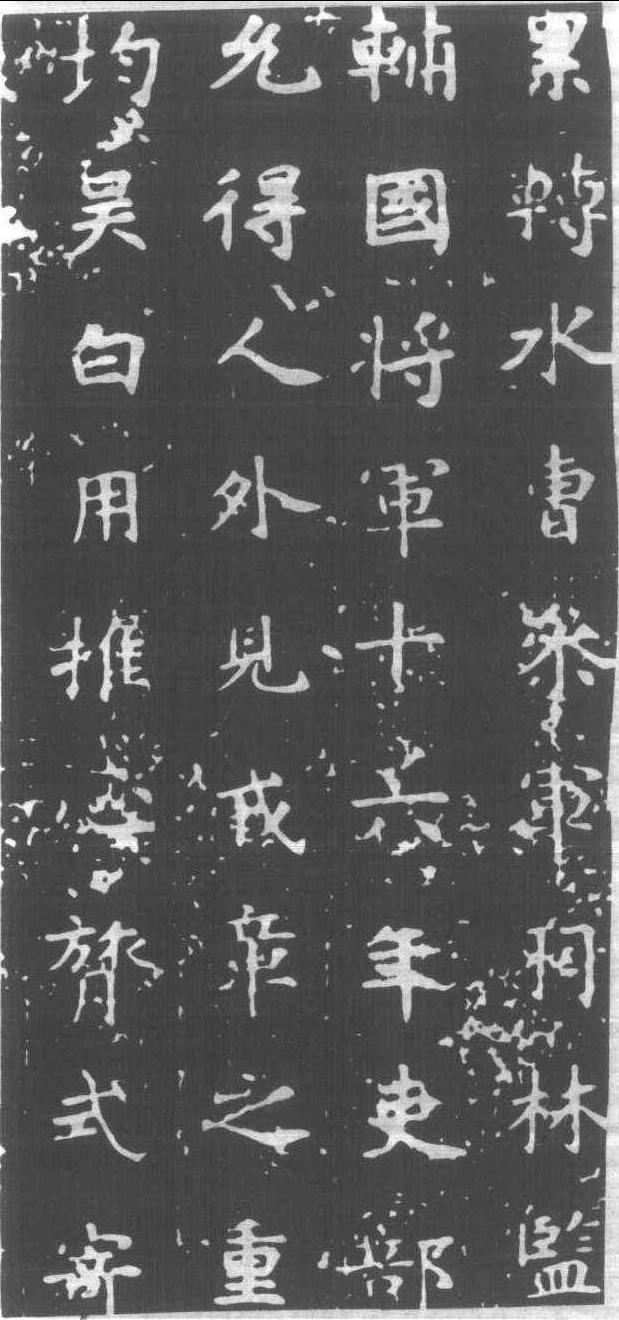 累轉水曹參軍羽林監
輔國將軍十六年吏部
允得人外見戎之重
均昊白用推齊式寄